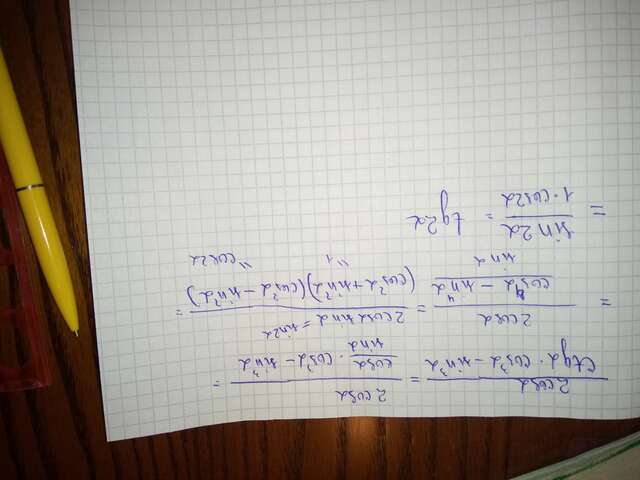 2cosα / (ctgα · cos³α − sin³α) = 2cosα / (cosα/sinα · cos³α − sin³α) =
= 2cosα / ((cos⁴α − sin⁴α)/sinα) = 2cosα sinα = sin2α / (cos²α + sin²α)(cos²α − sin²α) =
"1 "cos2α
= sin2α / 1·cos2α = tg2α